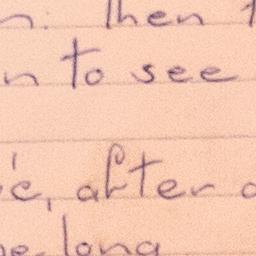 Then
to see
, after
long